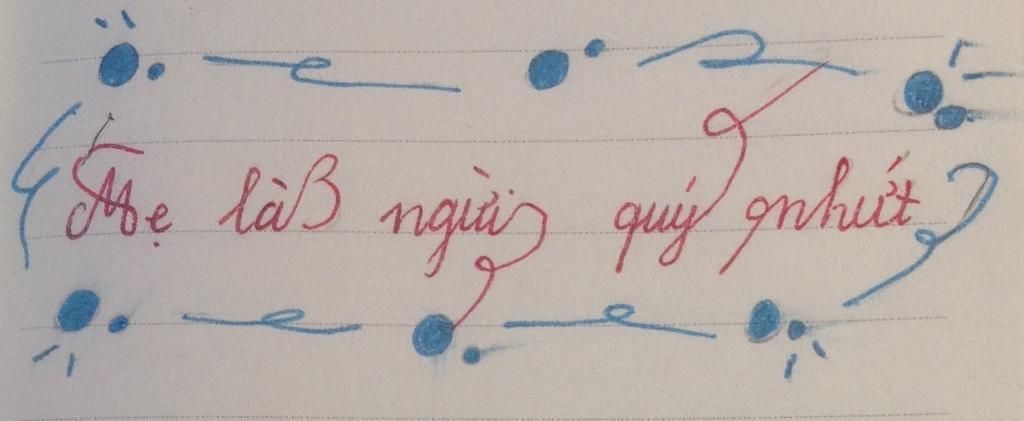 Mẹ là người quý nhứt